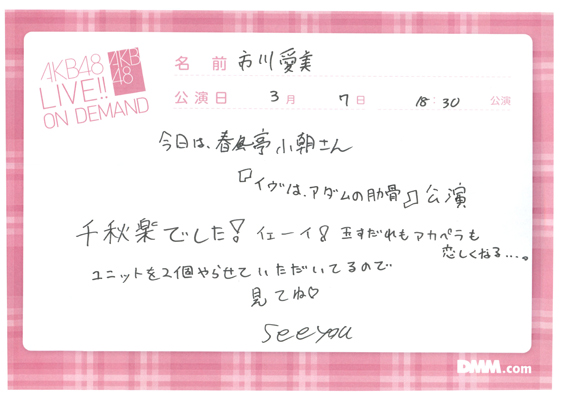 AKB48
LIVE!!
ON DEMAND
AKB
48
名前 市川愛美
公演日 3月 7日 18:30 公演
今日は、春風亭小朝さん
『イヴは、アダムの肋骨』公演
千秋楽でした! イェーイ! 玉すだれもアカペラも
恋しくなる...。
ユニットを2個やらせていただいてるので
見てね♡
see you
DMM.com